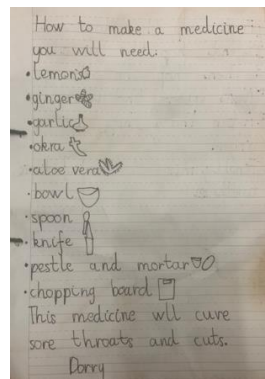 How to make a medicine
you will need:
•lemons
•ginger
•garlic
•okra
•aloe vera
•bowl
•spoon
•knife
•pestle and mortar
•chopping board
This medicine wll cure
sore throats and cuts.
Dorry